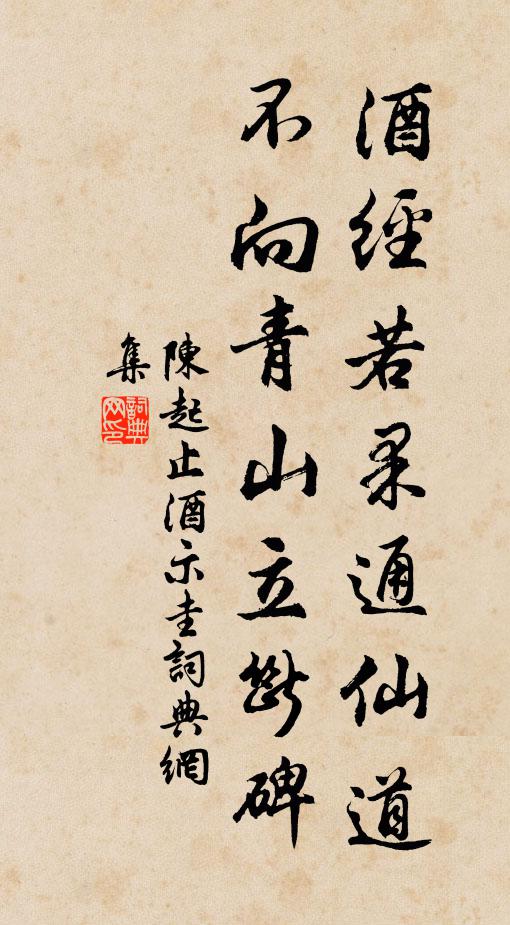 酒經若果通仙道
不向青山立斷碑
陳起止酒示圭詞典網
集
詞典網印